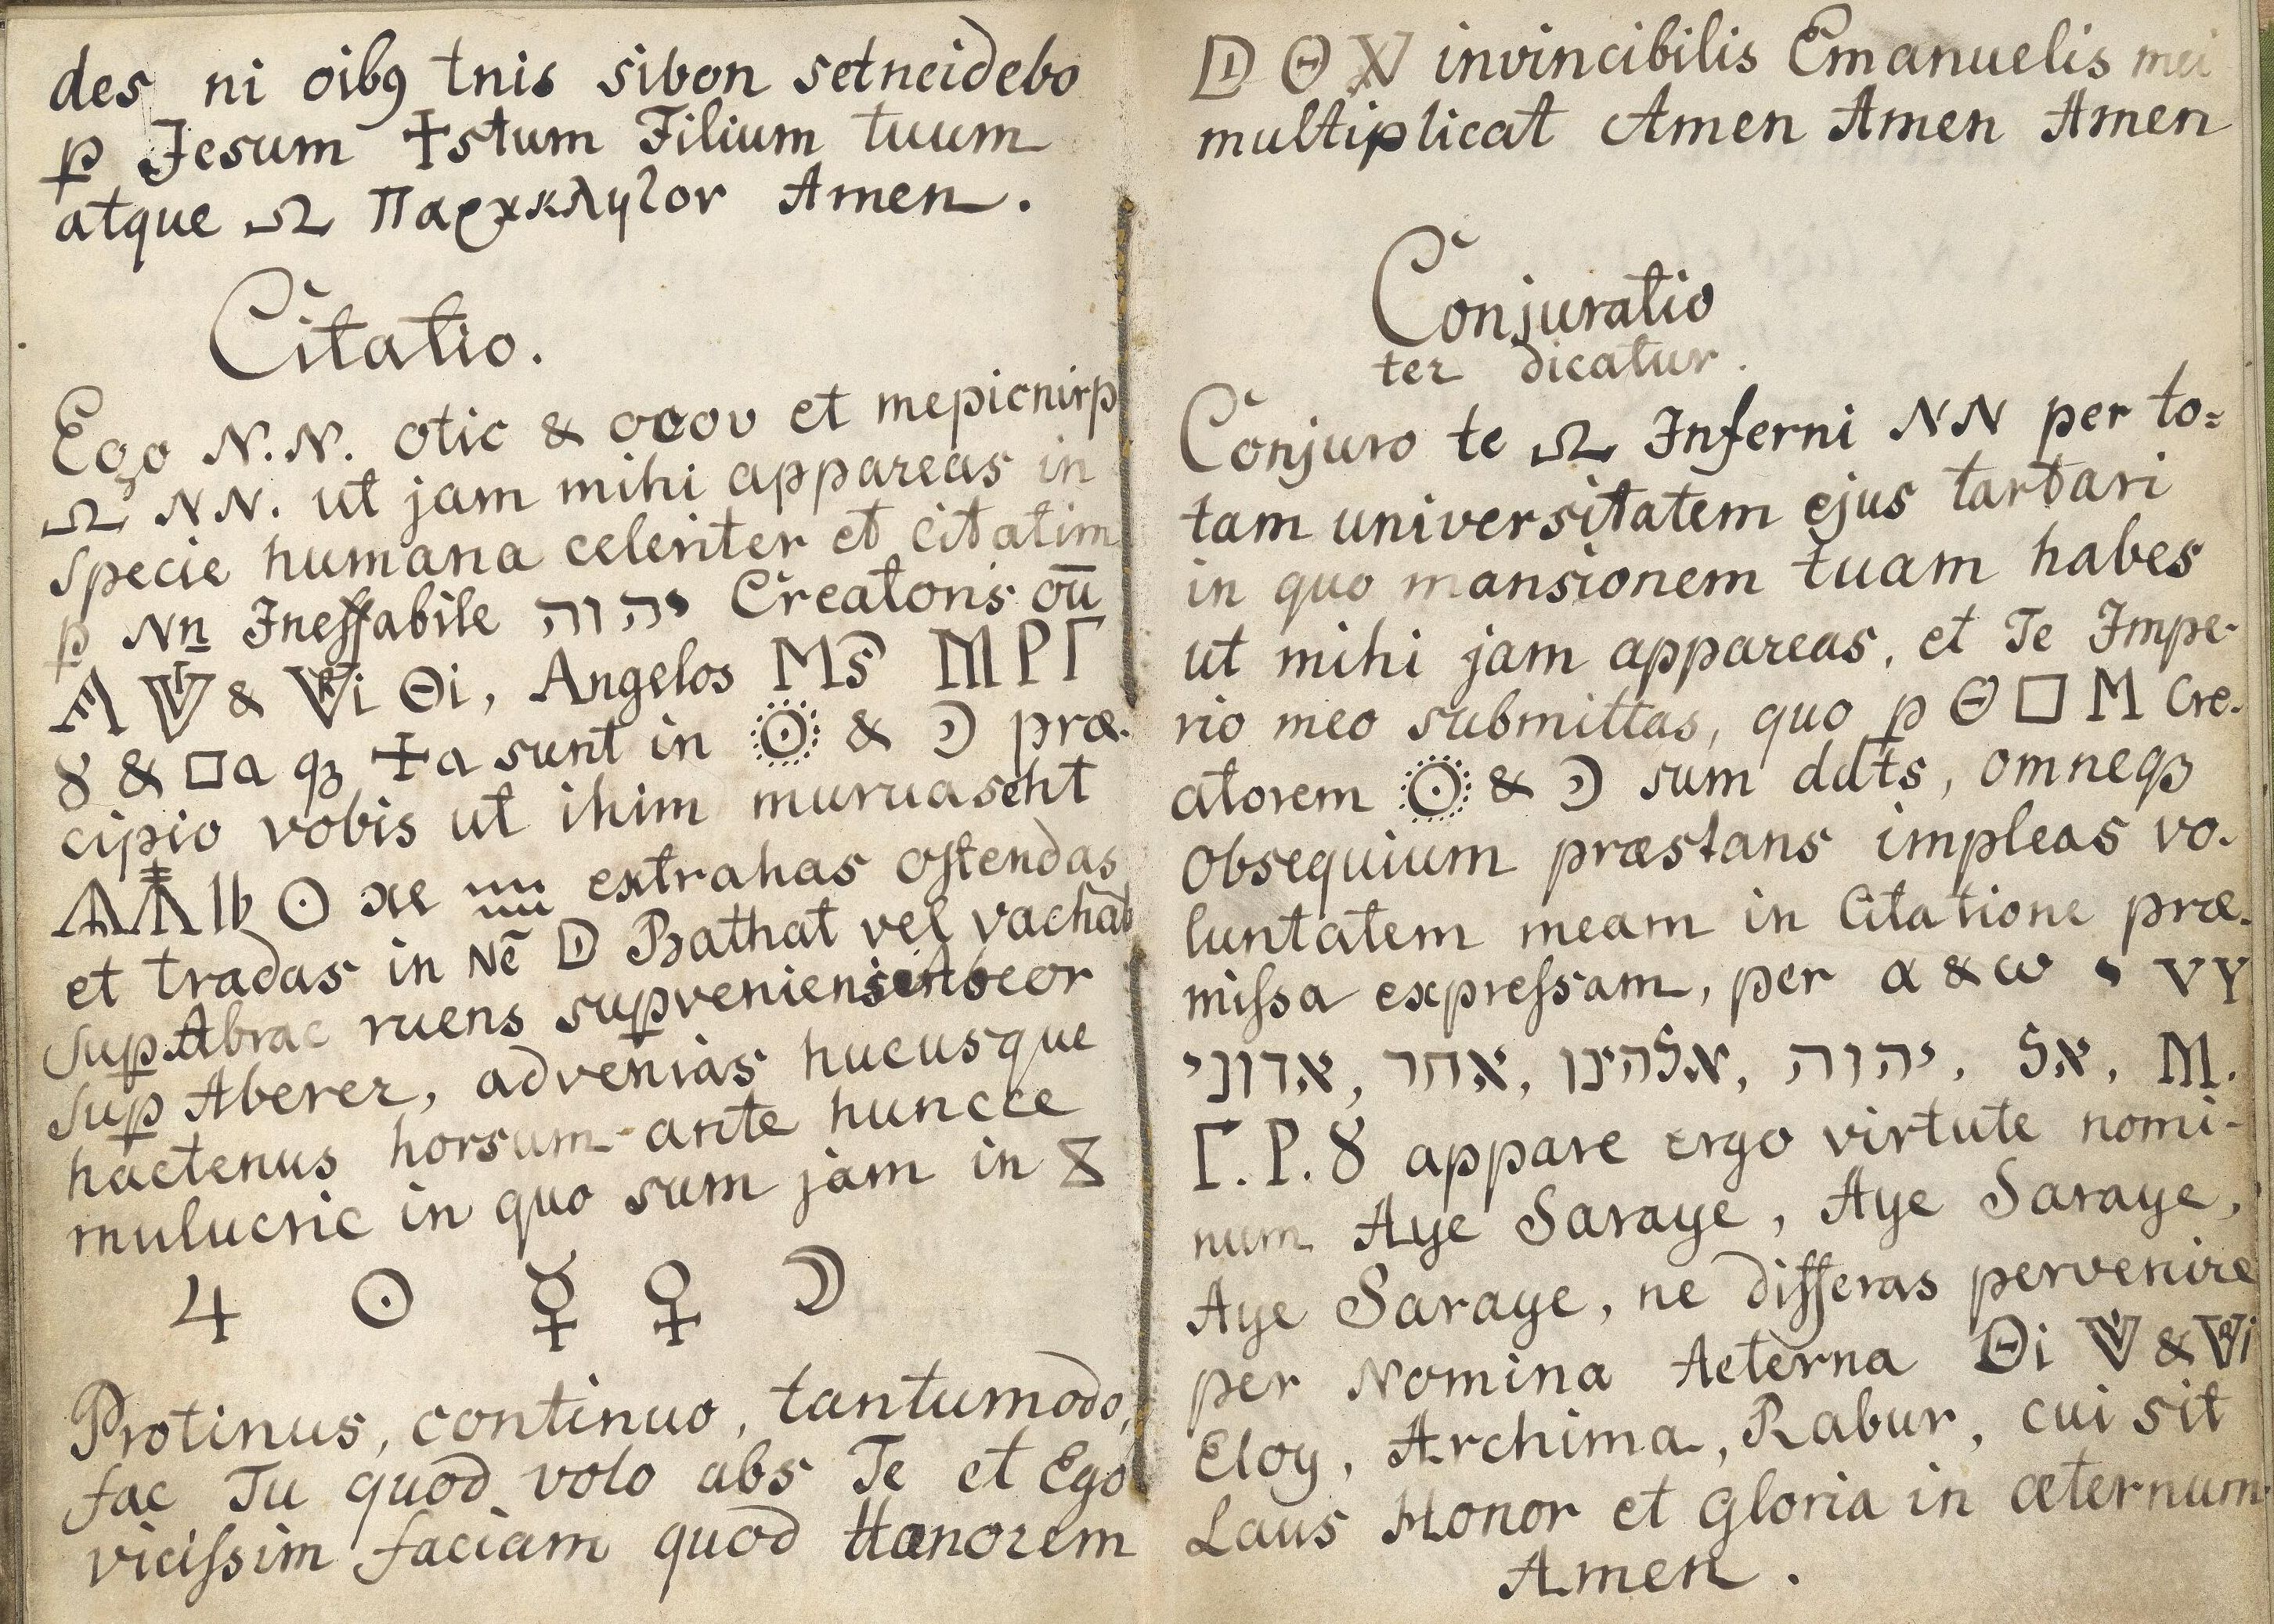 des ni oibꝯ tnis sibon setneidebo
ꝑ Jesum ✝stum Filium tuum
atque Ω Παρακλητον Amen.
Citatio.
Ego N.N. otic & ocov et mepicnirp
Ω NN. ut jam mihi appareas in
specie humana celeriter et citatim
ꝑ Nn Ineffabile יהוה Creatoris oū
& i Θi, Angelos Ms M P Γ
8 & □a qȝ ✝a sunt in ☉ & ☽ præ-
cipio vobis ut ihim muruaseht
☉ extrahas ostendas
et tradas in Nē D Bathat vel vachat
sup Abrac ruens supveniens
sup Aberer, advenias hucusque
hactenus horsum ante huncce
mulucric in quo sum jam in
♃ ☉ ☿ ♀ ☽
Protinus, continuo, tantumodo,
fac Tu quod volo abs Te et Ego
vicissim faciam quod Honorem
D Θ invincibilis Emanuelis mei
multiplicat Amen Amen Amen
Conjuratio
ter dicatur.
Conjuro te Ω Inferni NN per to=
tam universitatem ejus tartari
in quo mansionem tuam habes
ut mihi jam appareas, et Te Impe-
rio meo submittas, quo ꝑ Θ □ M Cre-
atorem ☉ & ☽ sum ddts, omneqȝ
obsequium præstans impleas vo-
luntatem meam in Citatione præ-
missa expressam, per α & ω י VY
אדוני, אחד, אלהינו, יהוה, אל, M.
Γ. P. 8 appare ergo virtute nomi-
num Aye Saraye, Aye Saraye,
Aye Saraye, ne differas pervenire
per Nomina Aeterna Θi & i
Eloy, Archima, Rabur, cui sit
Laus Honor et Gloria in æternum
Amen.